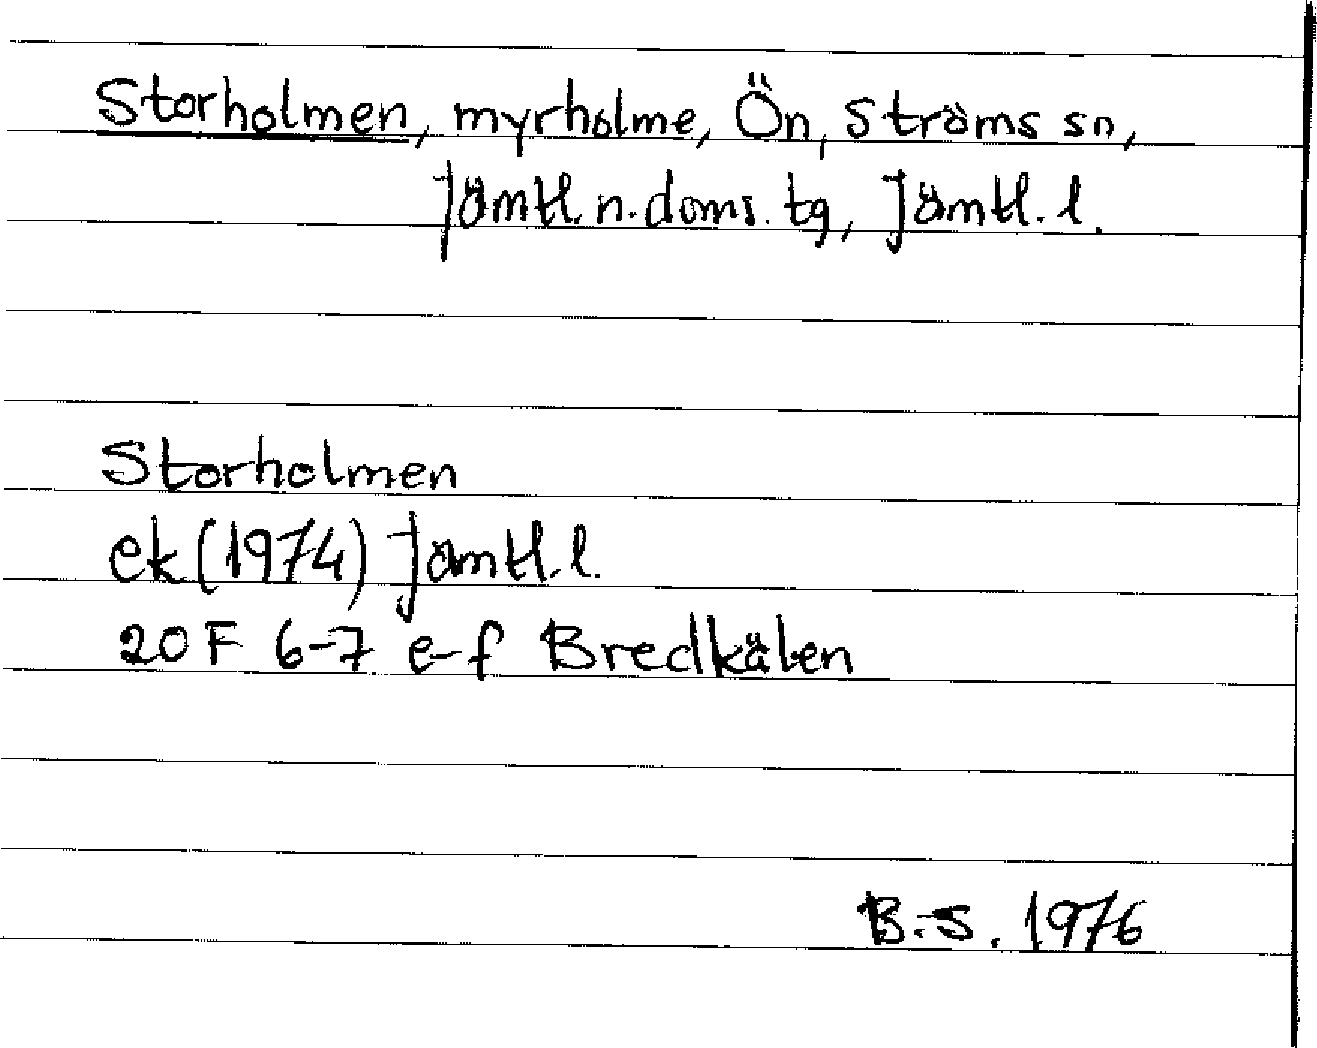 Storholmen, myrholme, Ön, Ströms sn,
Jämtl. n. doms. tg, Jämtl. l.
Storholmen
ek (1974) Jämtl. l.
20 F 6-7 e-f Bredkälen
B.S. 1976